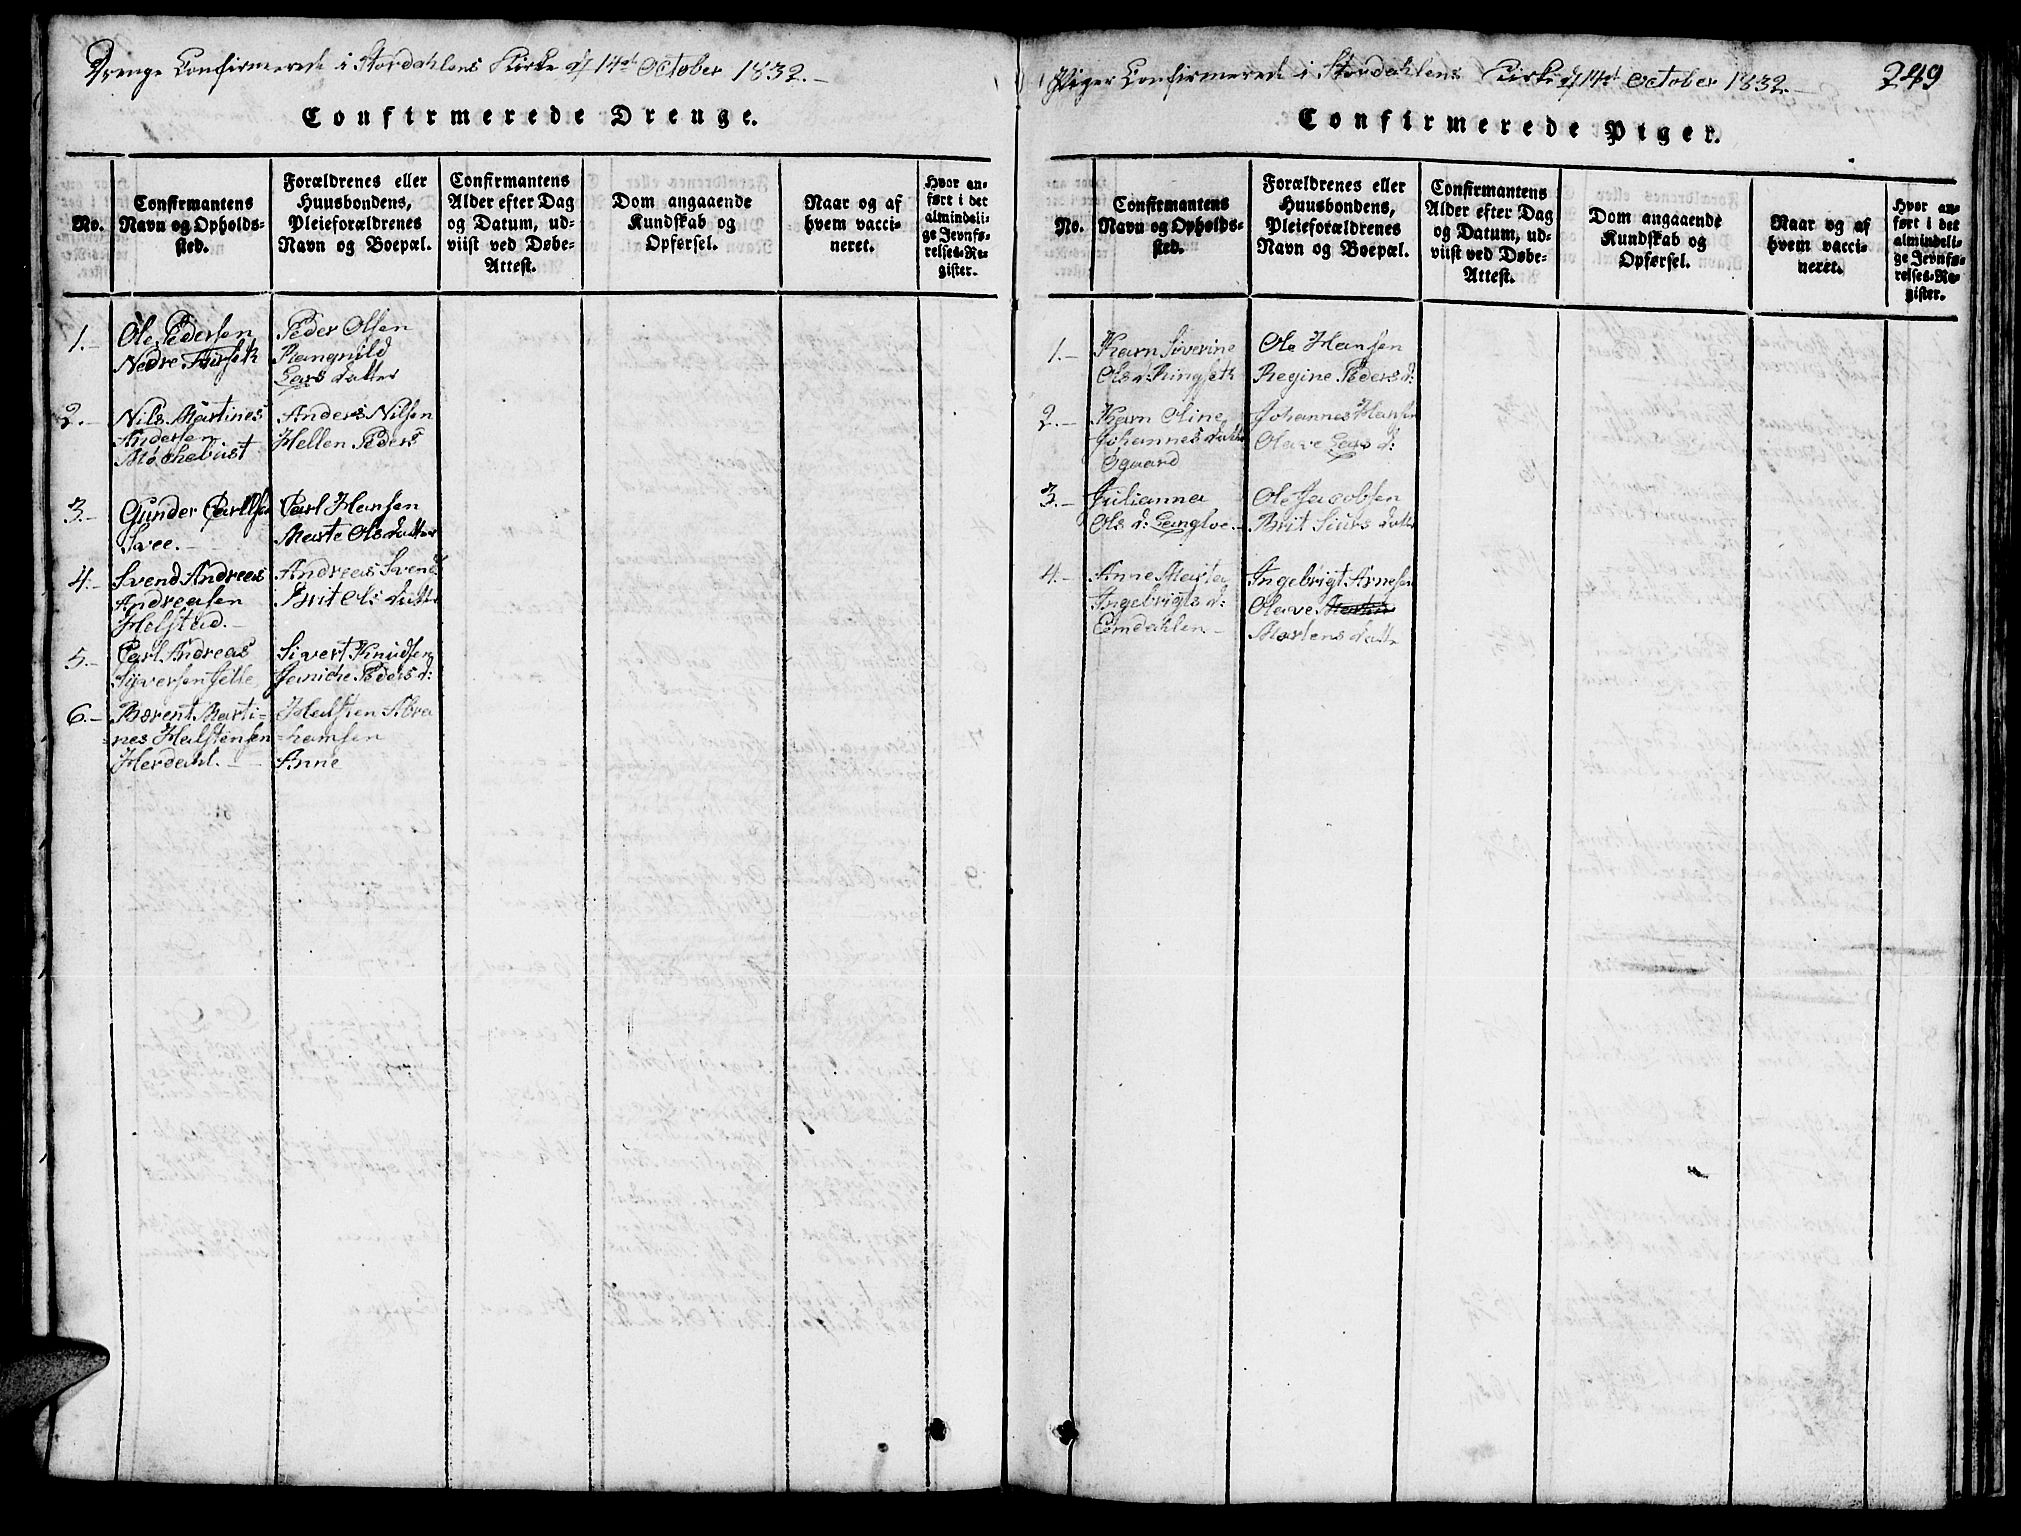 Drenge Confirmerede i Stordahlens Kirke d 14de October 1832.-
Confirmerede Drenge.
No.
Confirmantens
Navn og Opholds-
sted.
Forældrenes eller
Huusbondens,
Pleieforældrenes
Navn og Boepæl.
Confirmantens
Alder efter Dag
og Datum, ud-
viist ved Døbe-
Attest.
Dom angaaende
Kundskab og
Opførsel.
Naar og af
hvem vacci-
neret.
Hvor an-
ført i det
almindeli-
ge Jevnfø-
relses-Re-
gister.
1.-
Ole Pedersen
Nedre
Peder Olsen
Rangnild
Lars datter
2.-
Nils Martines
Andersen
Anders Nilsen
Hellen Peders
3.-
Gunder Carlsen
Svee.-
Carl Hansen
Marte Olsdatter
4.-
Svend Andreas
Andreasen
Hofstad.-
Andreas Svends
Brit Ols datter
5.-
Carl Andreas
Syversen
Sivert Knudsen
Janiche Peders d:
6.-
Berent Marti-
nes Halstensen
Herdahl.-
Halsten Abra
-hamsen
Anne
Piger Confirmerede i Stordahlens Kirke d 14de October 1832.-
249
Confirmerede Piger.
No.
Confirmantens
Navn og Opholds-
sted.
Forældrenes eller
Huusbondens,
Pleieforældrenes
Navn og Boepæl.
Confirmantens
Alder efter Dag
og Datum, ud-
viist ved Døbe-
Attest.
Dom angaaende
Kundskab og
Opførsel.
Naar og af
hvem vacci-
neret.
Hvor an-
ført i det
almindeli-
ge Jevnfø-
relses-Re-
gister.
1.-
Karn Siverine
Ols d: Ringseth
Ole Hansen
Regine Peders d:
2.-
Karn Oline
Johannes datter
Øgaard
Johannes Hansen
Olave Lars d:
3.-
Julianna
Ols d: Langloe.-
Ole Jacobsen
Brit Siurs datter
4.-
Anne Marta
Ingebrigts d:
Eemdahlen-
Ingebrigt Arnesen
Olave
Martens datter